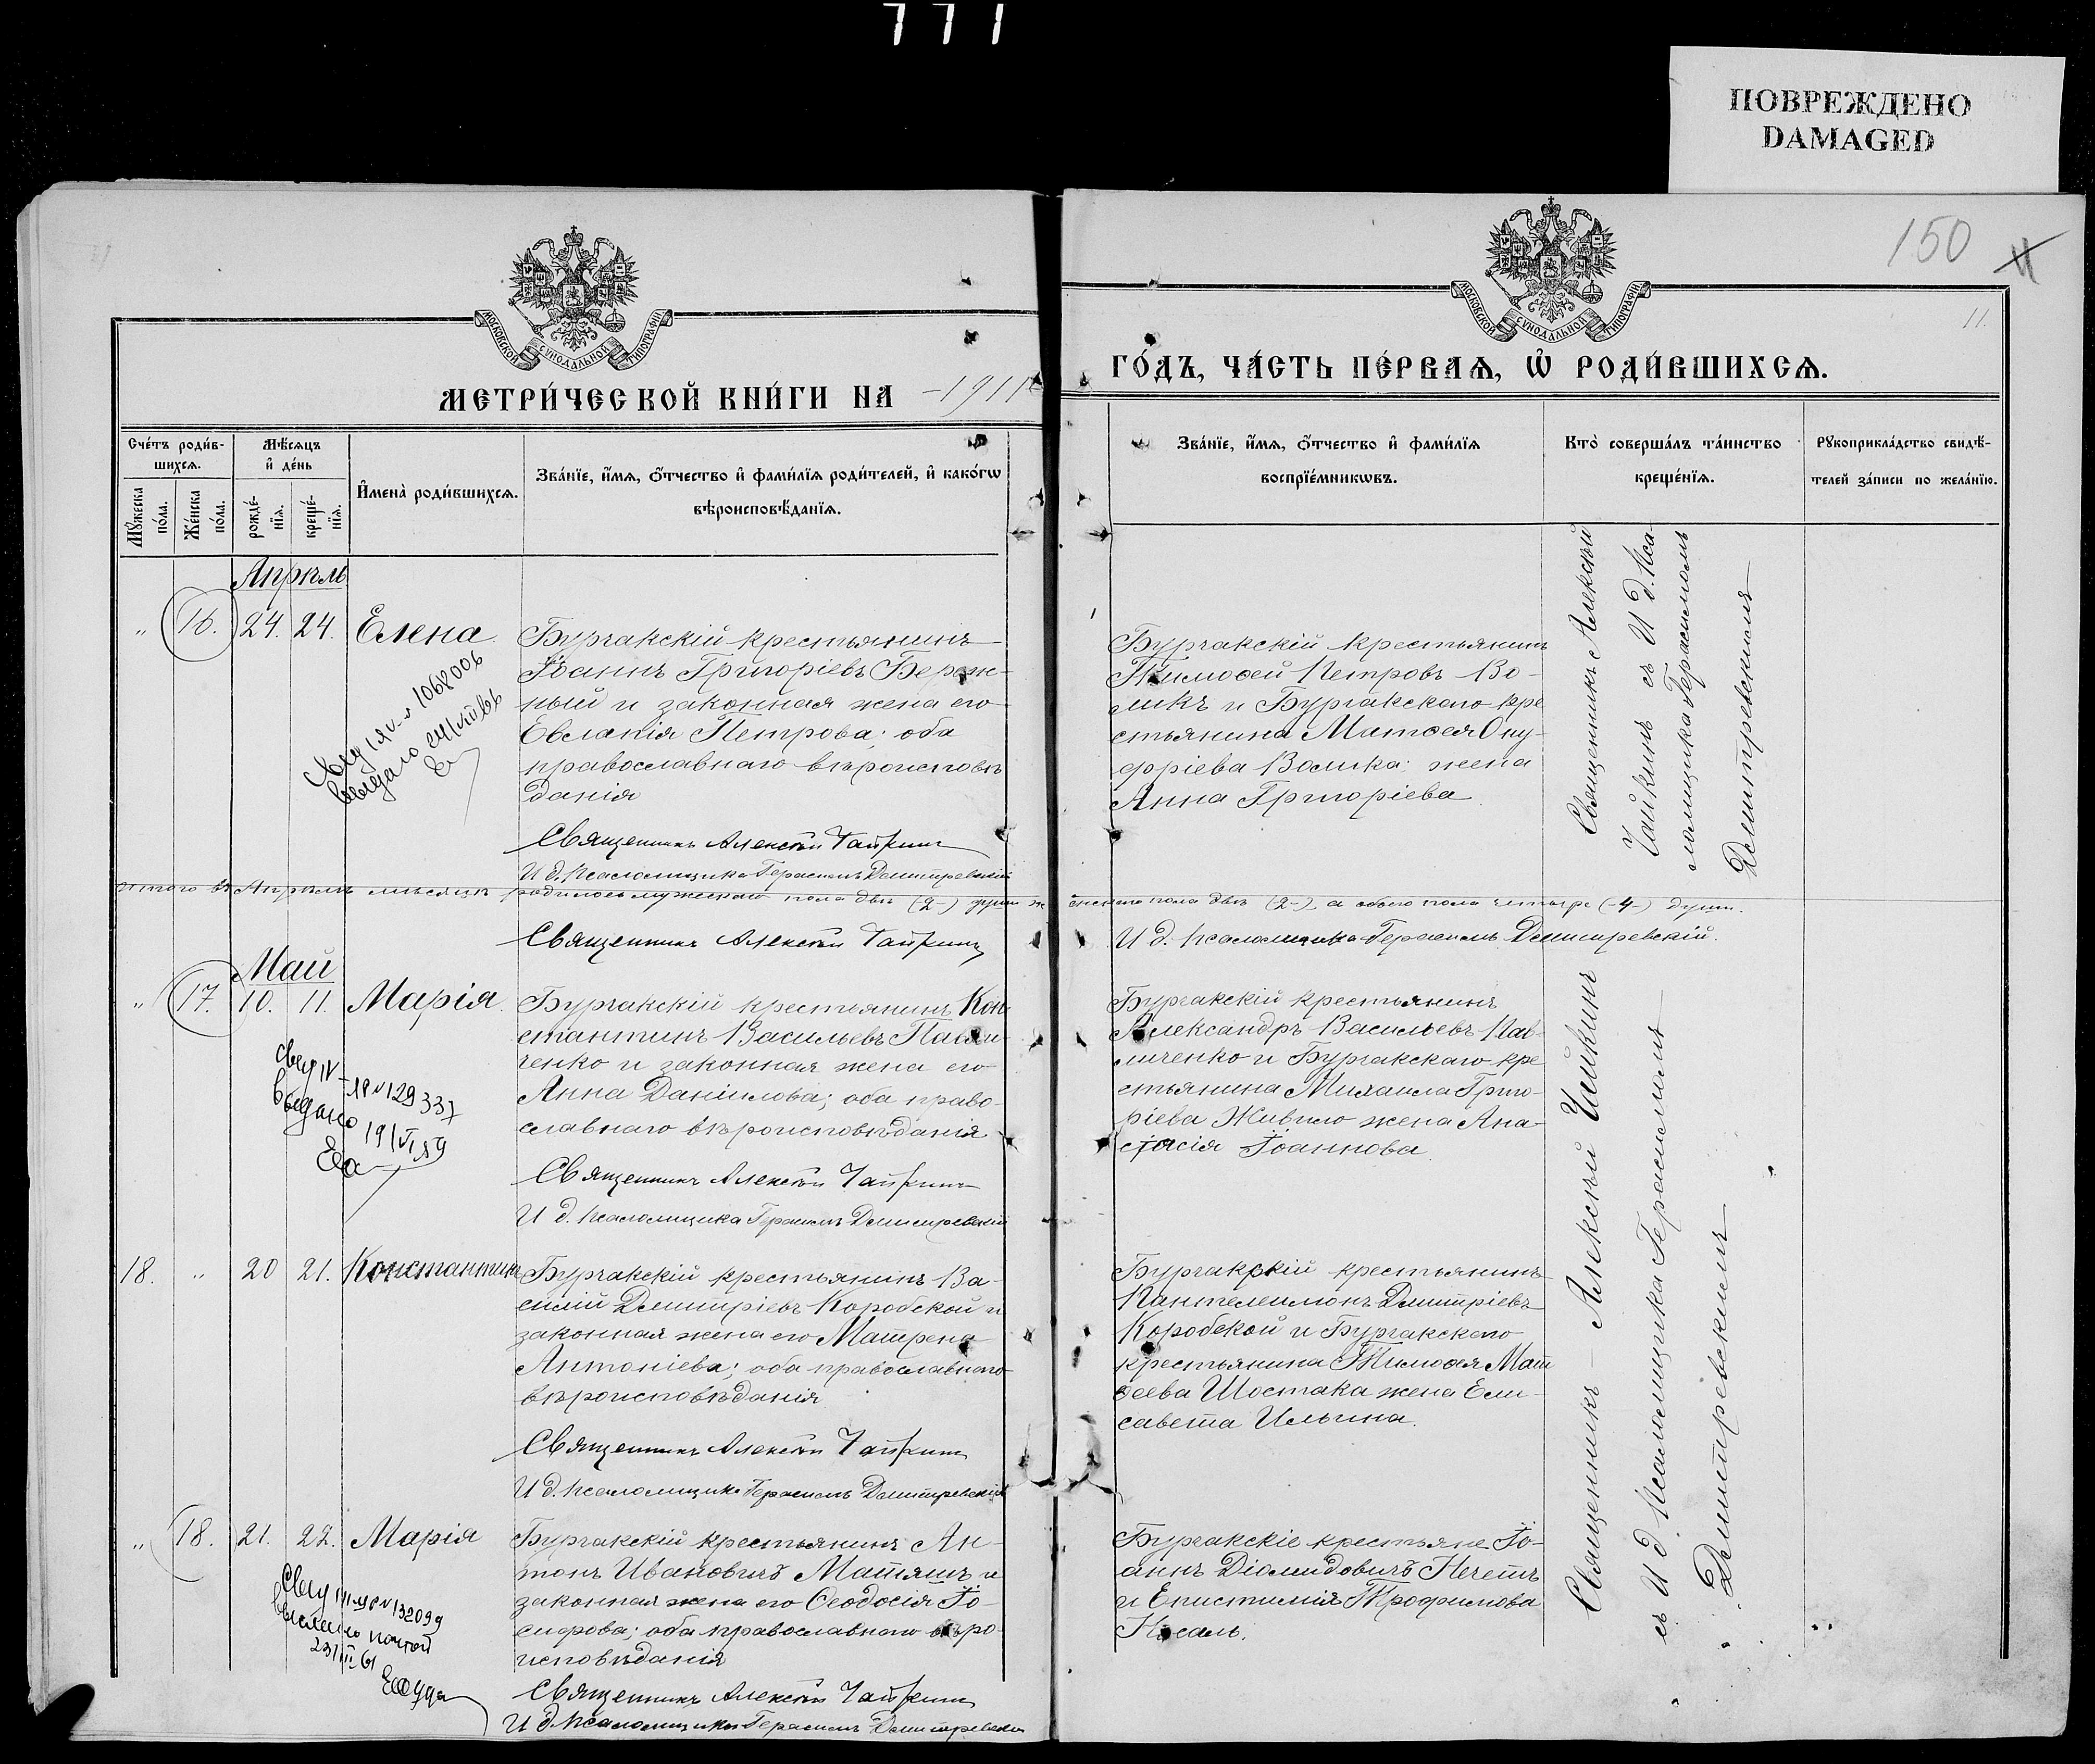 777
ПОВРЕЖДЕНО
DAMAGED
150
11
11.
МОСКОВСКОЙ СѴНОДАЛЬНОЙ ТИПОГРАФІИ
МОСКОВСКОЙ СѴНОДАЛЬНОЙ ТИПОГРАФІИ
МЕТРИ́ЧЕСКОЙ КНИ́ГИ НА -1911
ГО́ДЪ, ЧА́СТЬ ПЕ́РВАѦ, Ѡ҆ РОДИ́ВШИХСѦ.
Сче́тъ роди́в-
шихсѧ.
Мꙋ́жеска
по́ла.
Же́нска
по́ла.
Мѣ́сѧцъ
и҆ де́нь
рожде́-
нїѧ.
креще́-
нїѧ.
И҆мена̀ роди́вшихсѧ.
Зва́нїе, и҆́мѧ, ѻ҆́тчество и҆ фами́лїѧ роди́телей, и҆ како́гѡ
вѣроисповѣ́данїѧ.
Зва́нїе, и҆́мѧ, ѻ҆́тчество и҆ фами́лїѧ
воспрїе́мникѡвъ.
Кто̀ соверша́лъ та́инство
креще́нїѧ.
Рꙋкоприкла́дство свидѣ́-
телей за́писи по жела́нїю.
Апрѣль
„ 16. 24. 24. Елена
Бургакскій крестьянинъ
Іоаннъ Григоріевъ Береж-
ный и законная жена его
Евлампія Петрова; оба
православнаго вѣроисповѣ
данія
Священникъ Алексѣй Чайкинъ
И д. Псаломщика Герасимъ Демитревскій
1068006
выдано
Бургакскій крестьянинъ
Тимоѳей Петровъ Во-
ликъ и Бургакскаго кре
стьянина Матѳея Ону-
фріева Волика; жена
Анна Григоріева
Священникъ Алексѣй
Чайкинъ съ И д. Пса
ломщика Герасимомъ
Демитревскимъ
Итого въ Апрѣлѣ мѣсяцѣ родилось мужескаго пола двѣ (2-) души женскаго пола двѣ (2-), а обоего пола четыре (-4-) души.
Священникъ Алексѣй Чайкинъ
И д. Псаломщика Герасимъ Демитревскій.
Май
„ 17. 10. 11. Марія
Бургакскій крестьянинъ Кон
стантинъ Васильевъ Павли-
ченко и законная жена его
Анна Даніилова; оба право-
славнаго вѣроисповѣданія
Священникъ Алексѣй Чайкинъ
И д. Псаломщика Герасимъ Демитревскій
129337
выдано
19/VI 59
Бургакскій крестьянинъ
Александръ Васильевъ Пав-
личенко и Бургакскаго кре
стьянина Михаила Григо-
ріева Живило жена Ана-
стасія Іоаннова.
18. „ 20 21. Константинъ
Бургакскій крестьянинъ Ва-
силій Димитріевъ Коробской и
законная жена его Матрена
Антоніева; оба православнаго
вѣроисповѣданія
Священникъ Алексѣй Чайкинъ
И д. Псаломщика Герасимъ Демитревскій
Бургакскій крестьянинъ
Пантелеимонъ Димитріевъ
Коробской и Бургакскаго
крестьянина Тимоѳея Мат
ѳеева Шостака жена Ели-
савета Ильина.
„ 18. 21. 22. Марія
Бургакскій крестьянинъ Ан-
тонъ Ивановичъ Матяшъ и
законная жена его Ѳеодосія Іо-
сифова; оба православнаго вѣро-
исповѣданія
Священникъ Алексѣй Чайкинъ
И д. Псаломщика Герасимъ Демитревскій
132099
почтой
23/III 61
Бургакскіе крестьяне Іо-
аннъ Діомидовичъ Нечетъ
и Епистимія Трофимова
Носаль.
Священникъ — Алексѣй Чайкинъ
съ И д. Псаломщика Герасимомъ
Демитревскимъ